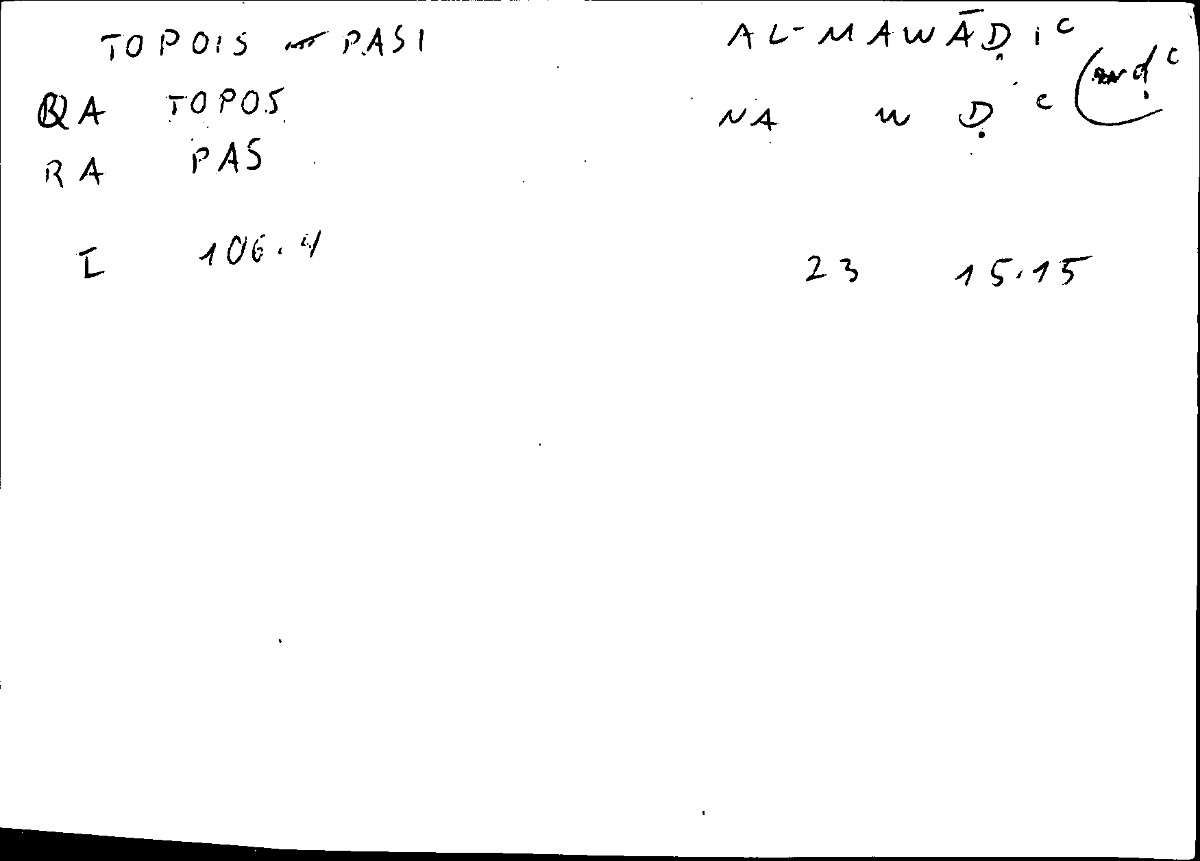 TOPOIS PASI AL-MAWĀḌIC
QA TOPOS NA W Ḍ C
RA PAS
I 106.4 23 15.15